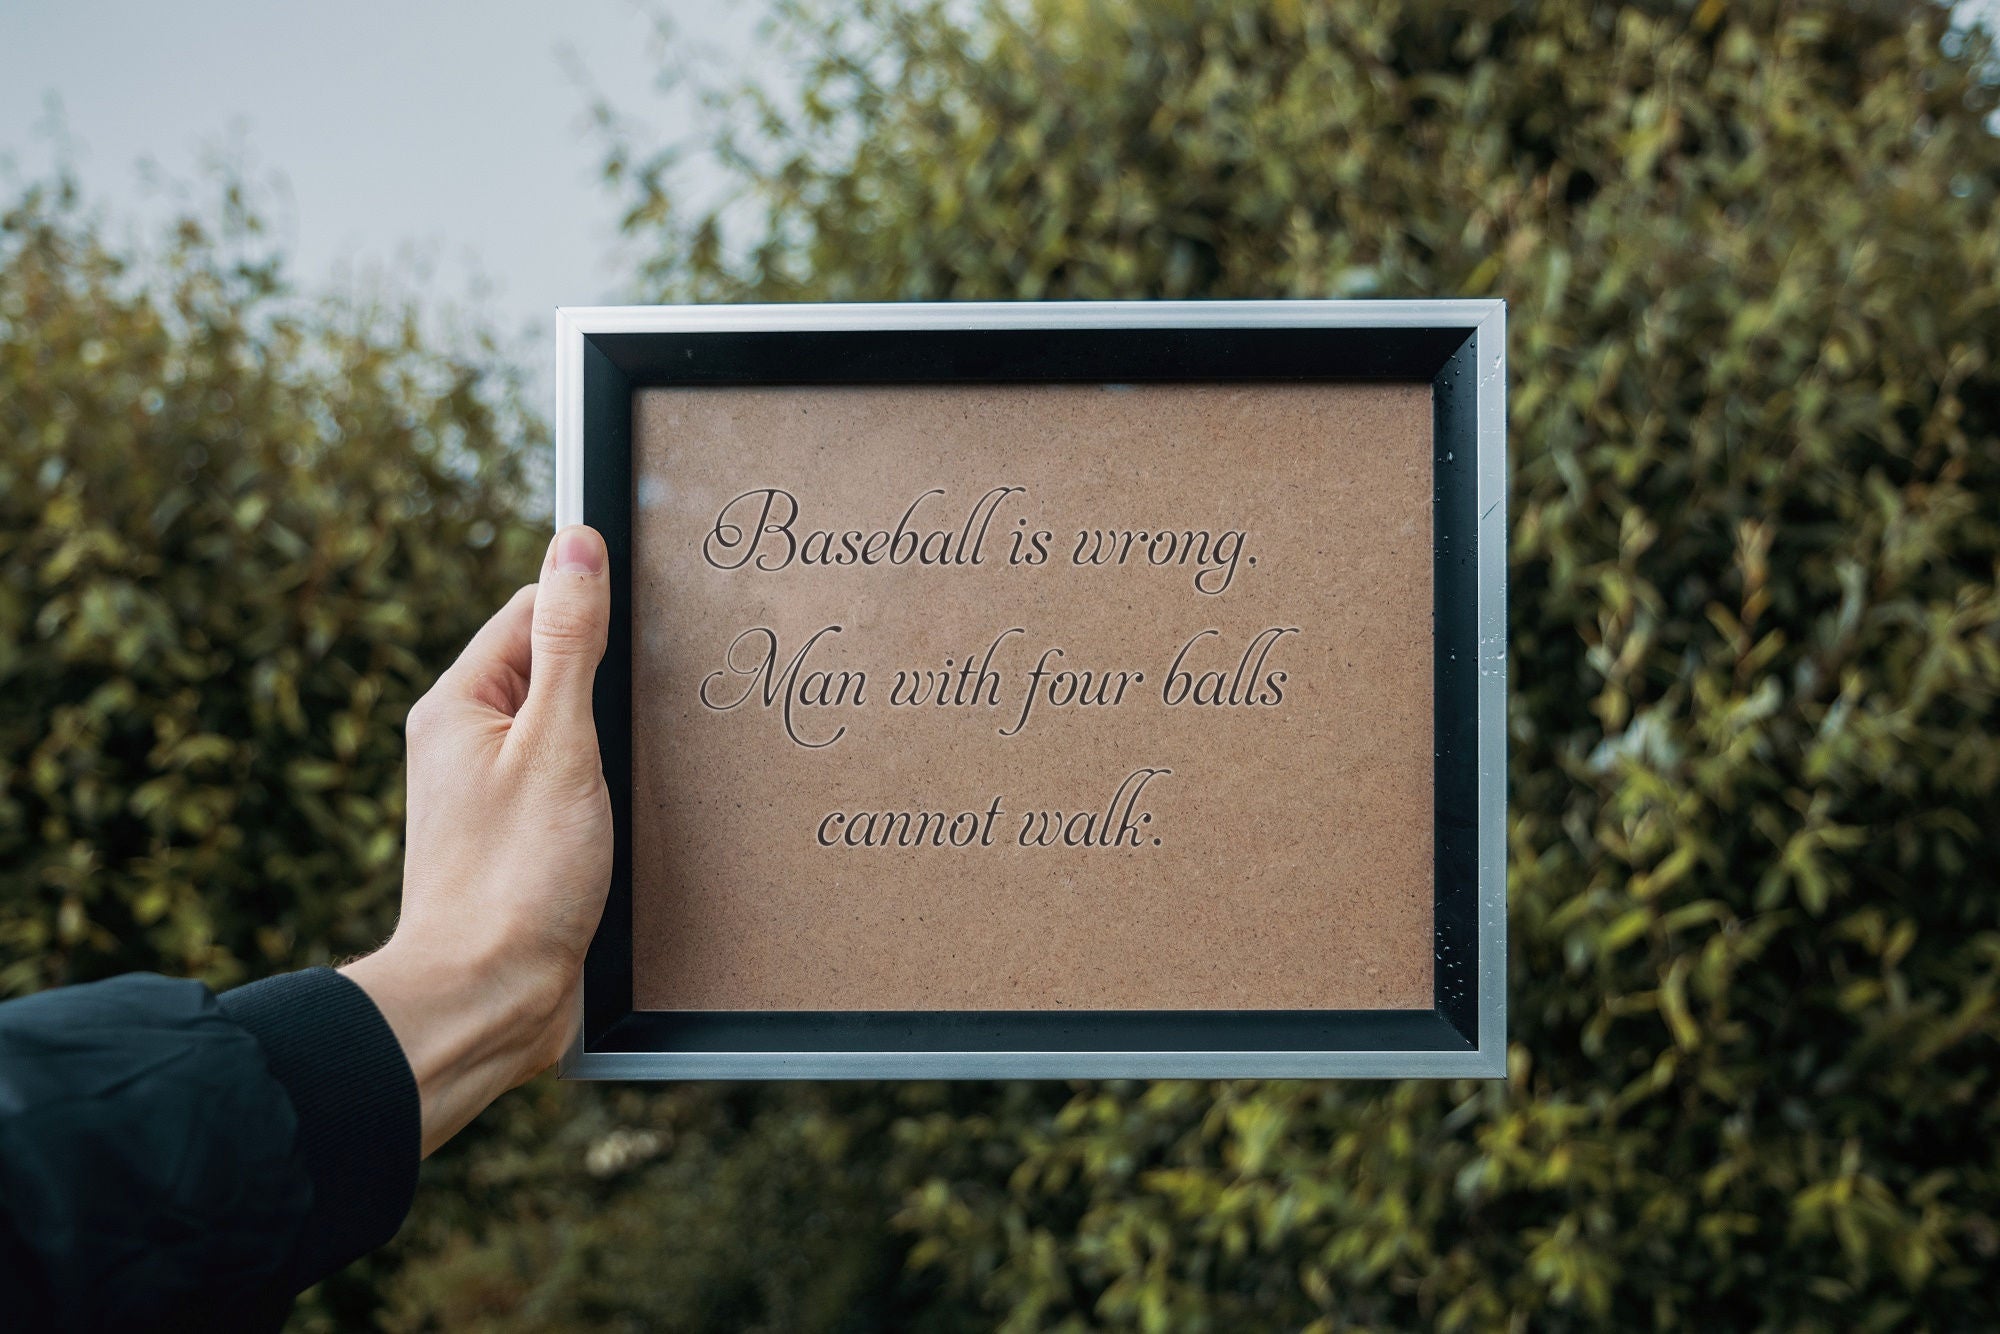 Baseball is wrong.
Man with four balls
cannot walk.